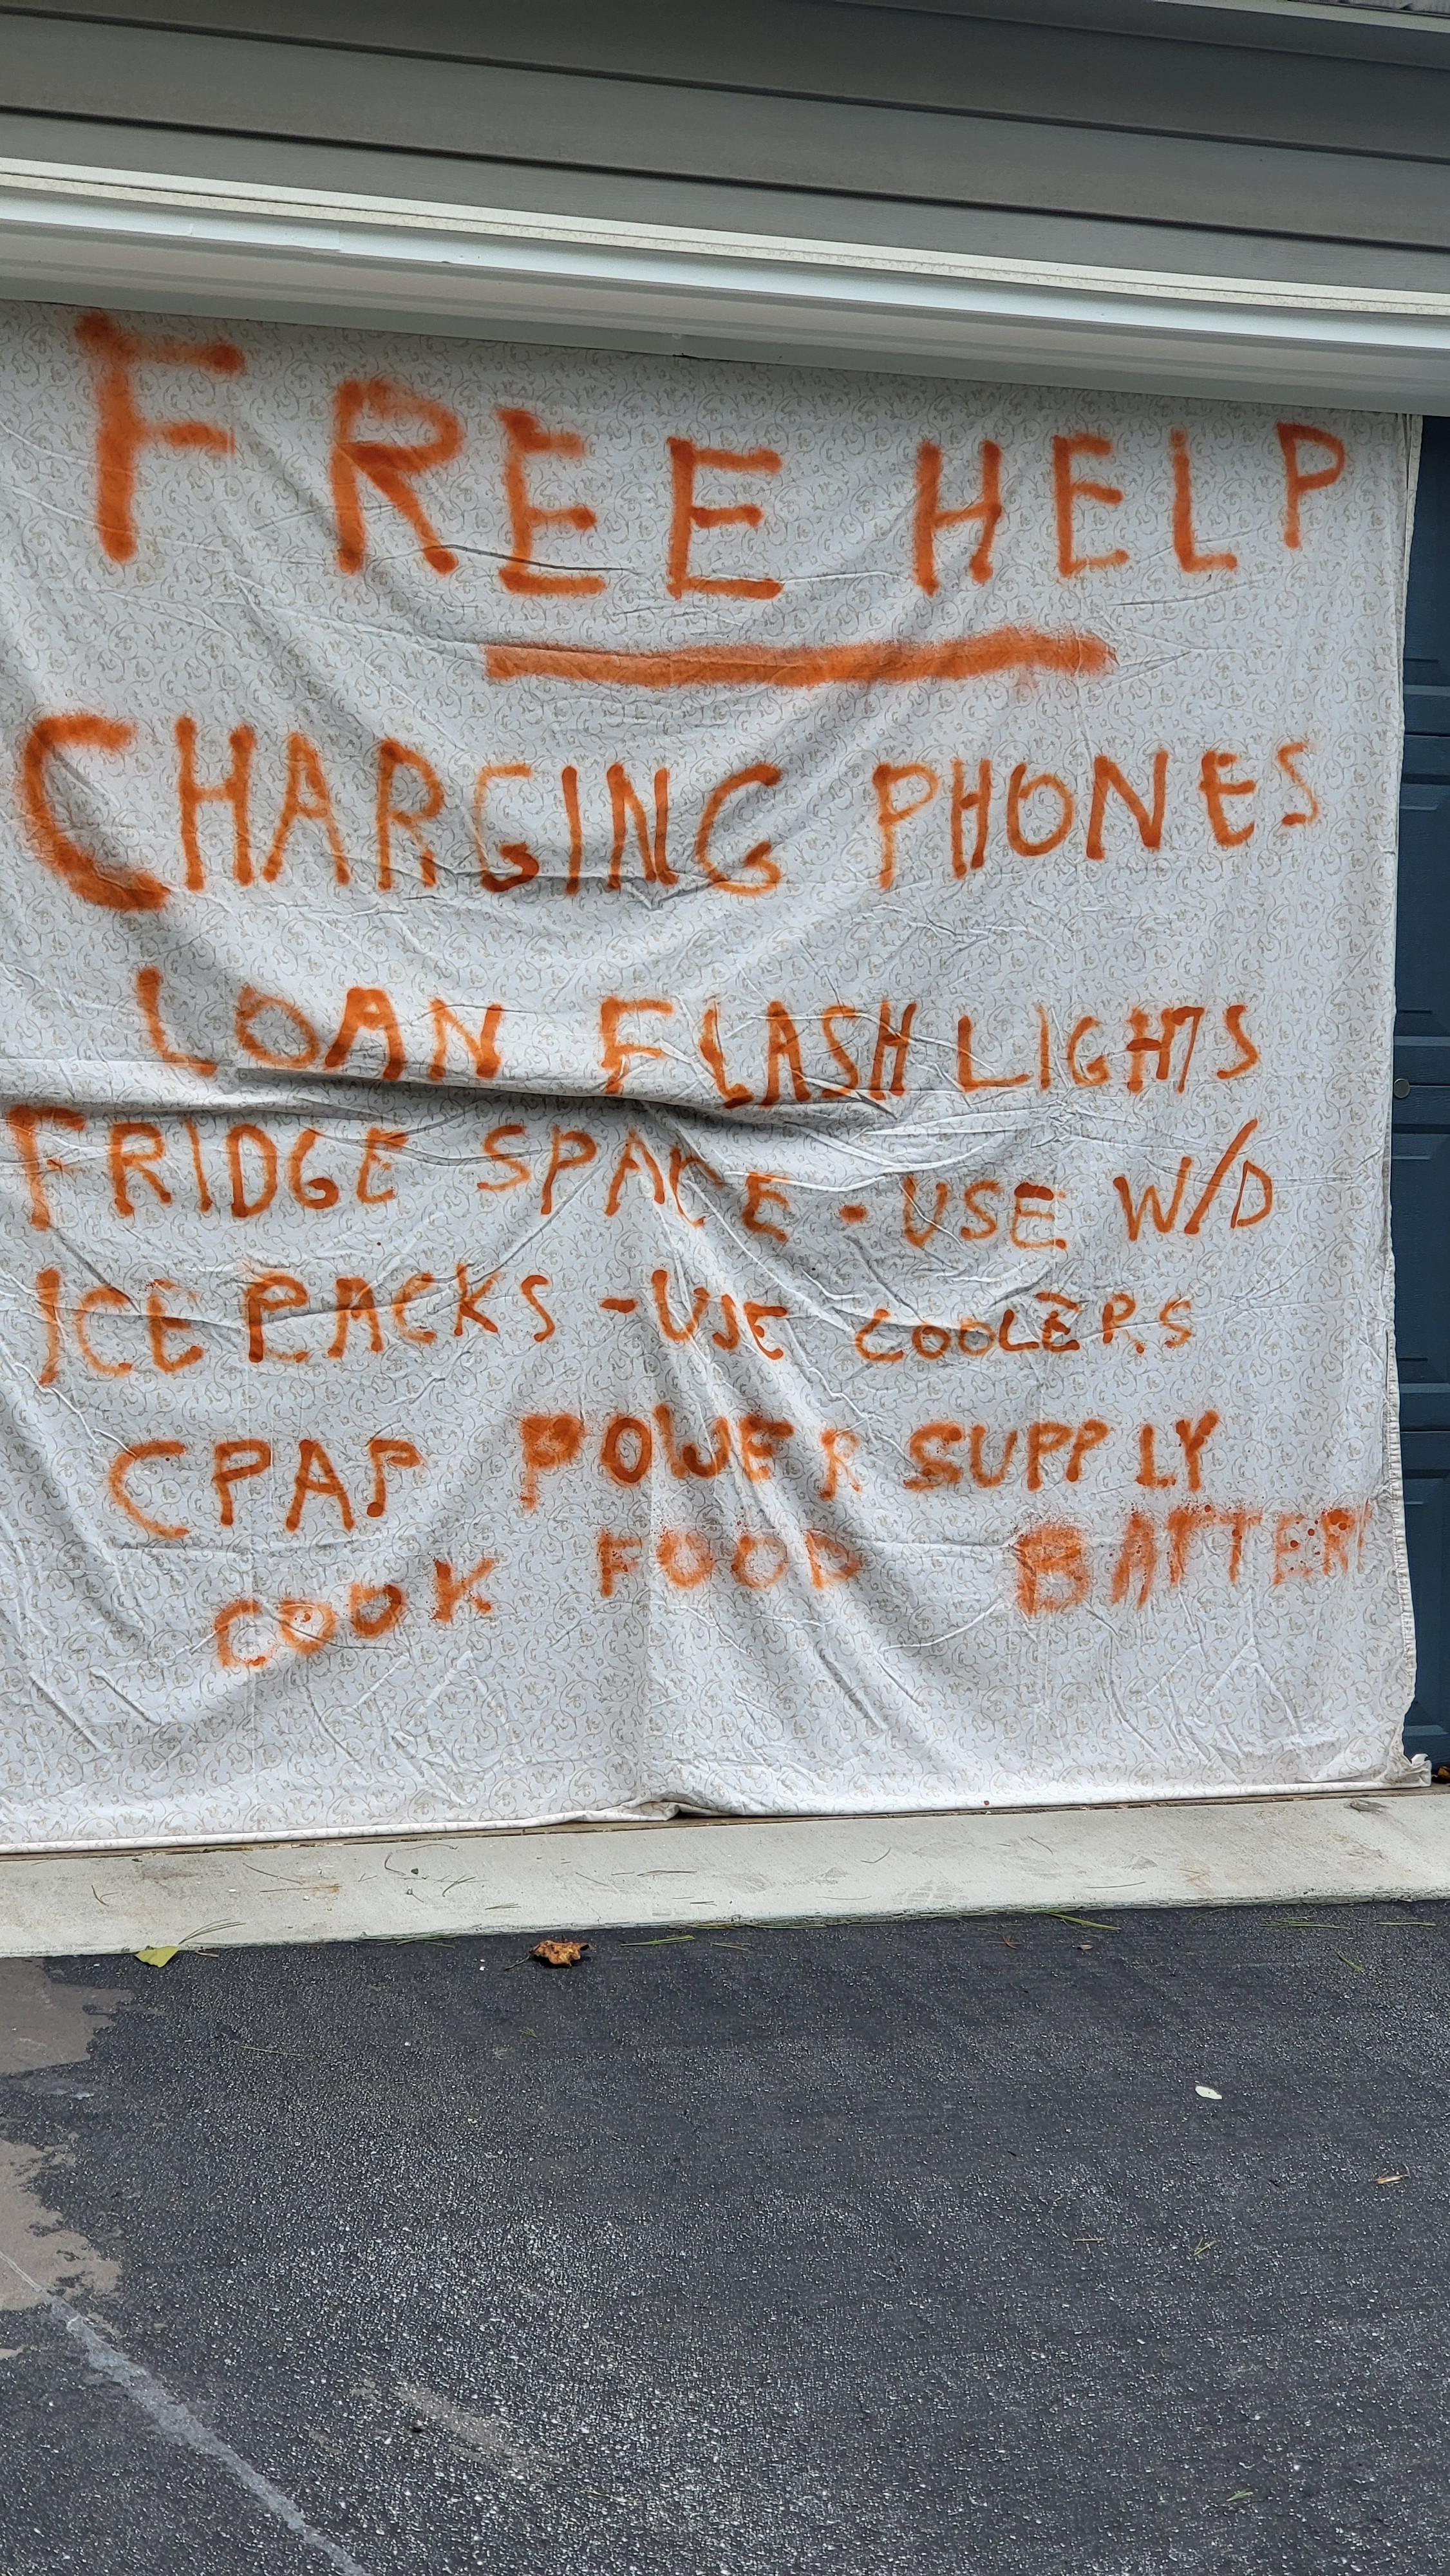 FREE HELP
CHARGING PHONES
LOAN FLASHLIGHTS
FRIDGE SPACE - USE W/D
ICE PACKS - USE COOLERS
CPAP POWER SUPPLY
COOK FOOD BATTERY